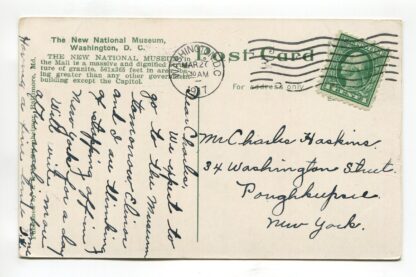 The New National Museum,
Washington, D. C.
THE NEW NATIONAL MUSEUM in
the Mall is a massive and dignified
ture of granite, 561x365 feet in area
ing greater than any other govern
building except the Capitol.
Post Card
For address only
WASHINGTON, D.C.
MAR 27
30AM
1917
Dear Charles,
We expect to
go to the Museum
tomorrow
and I am thinking
of stopping off in
New York for a day
Will write more
Having a fine
Mr Charles Haskins.
34 Washington Street.
Poughkeepsie
New York.